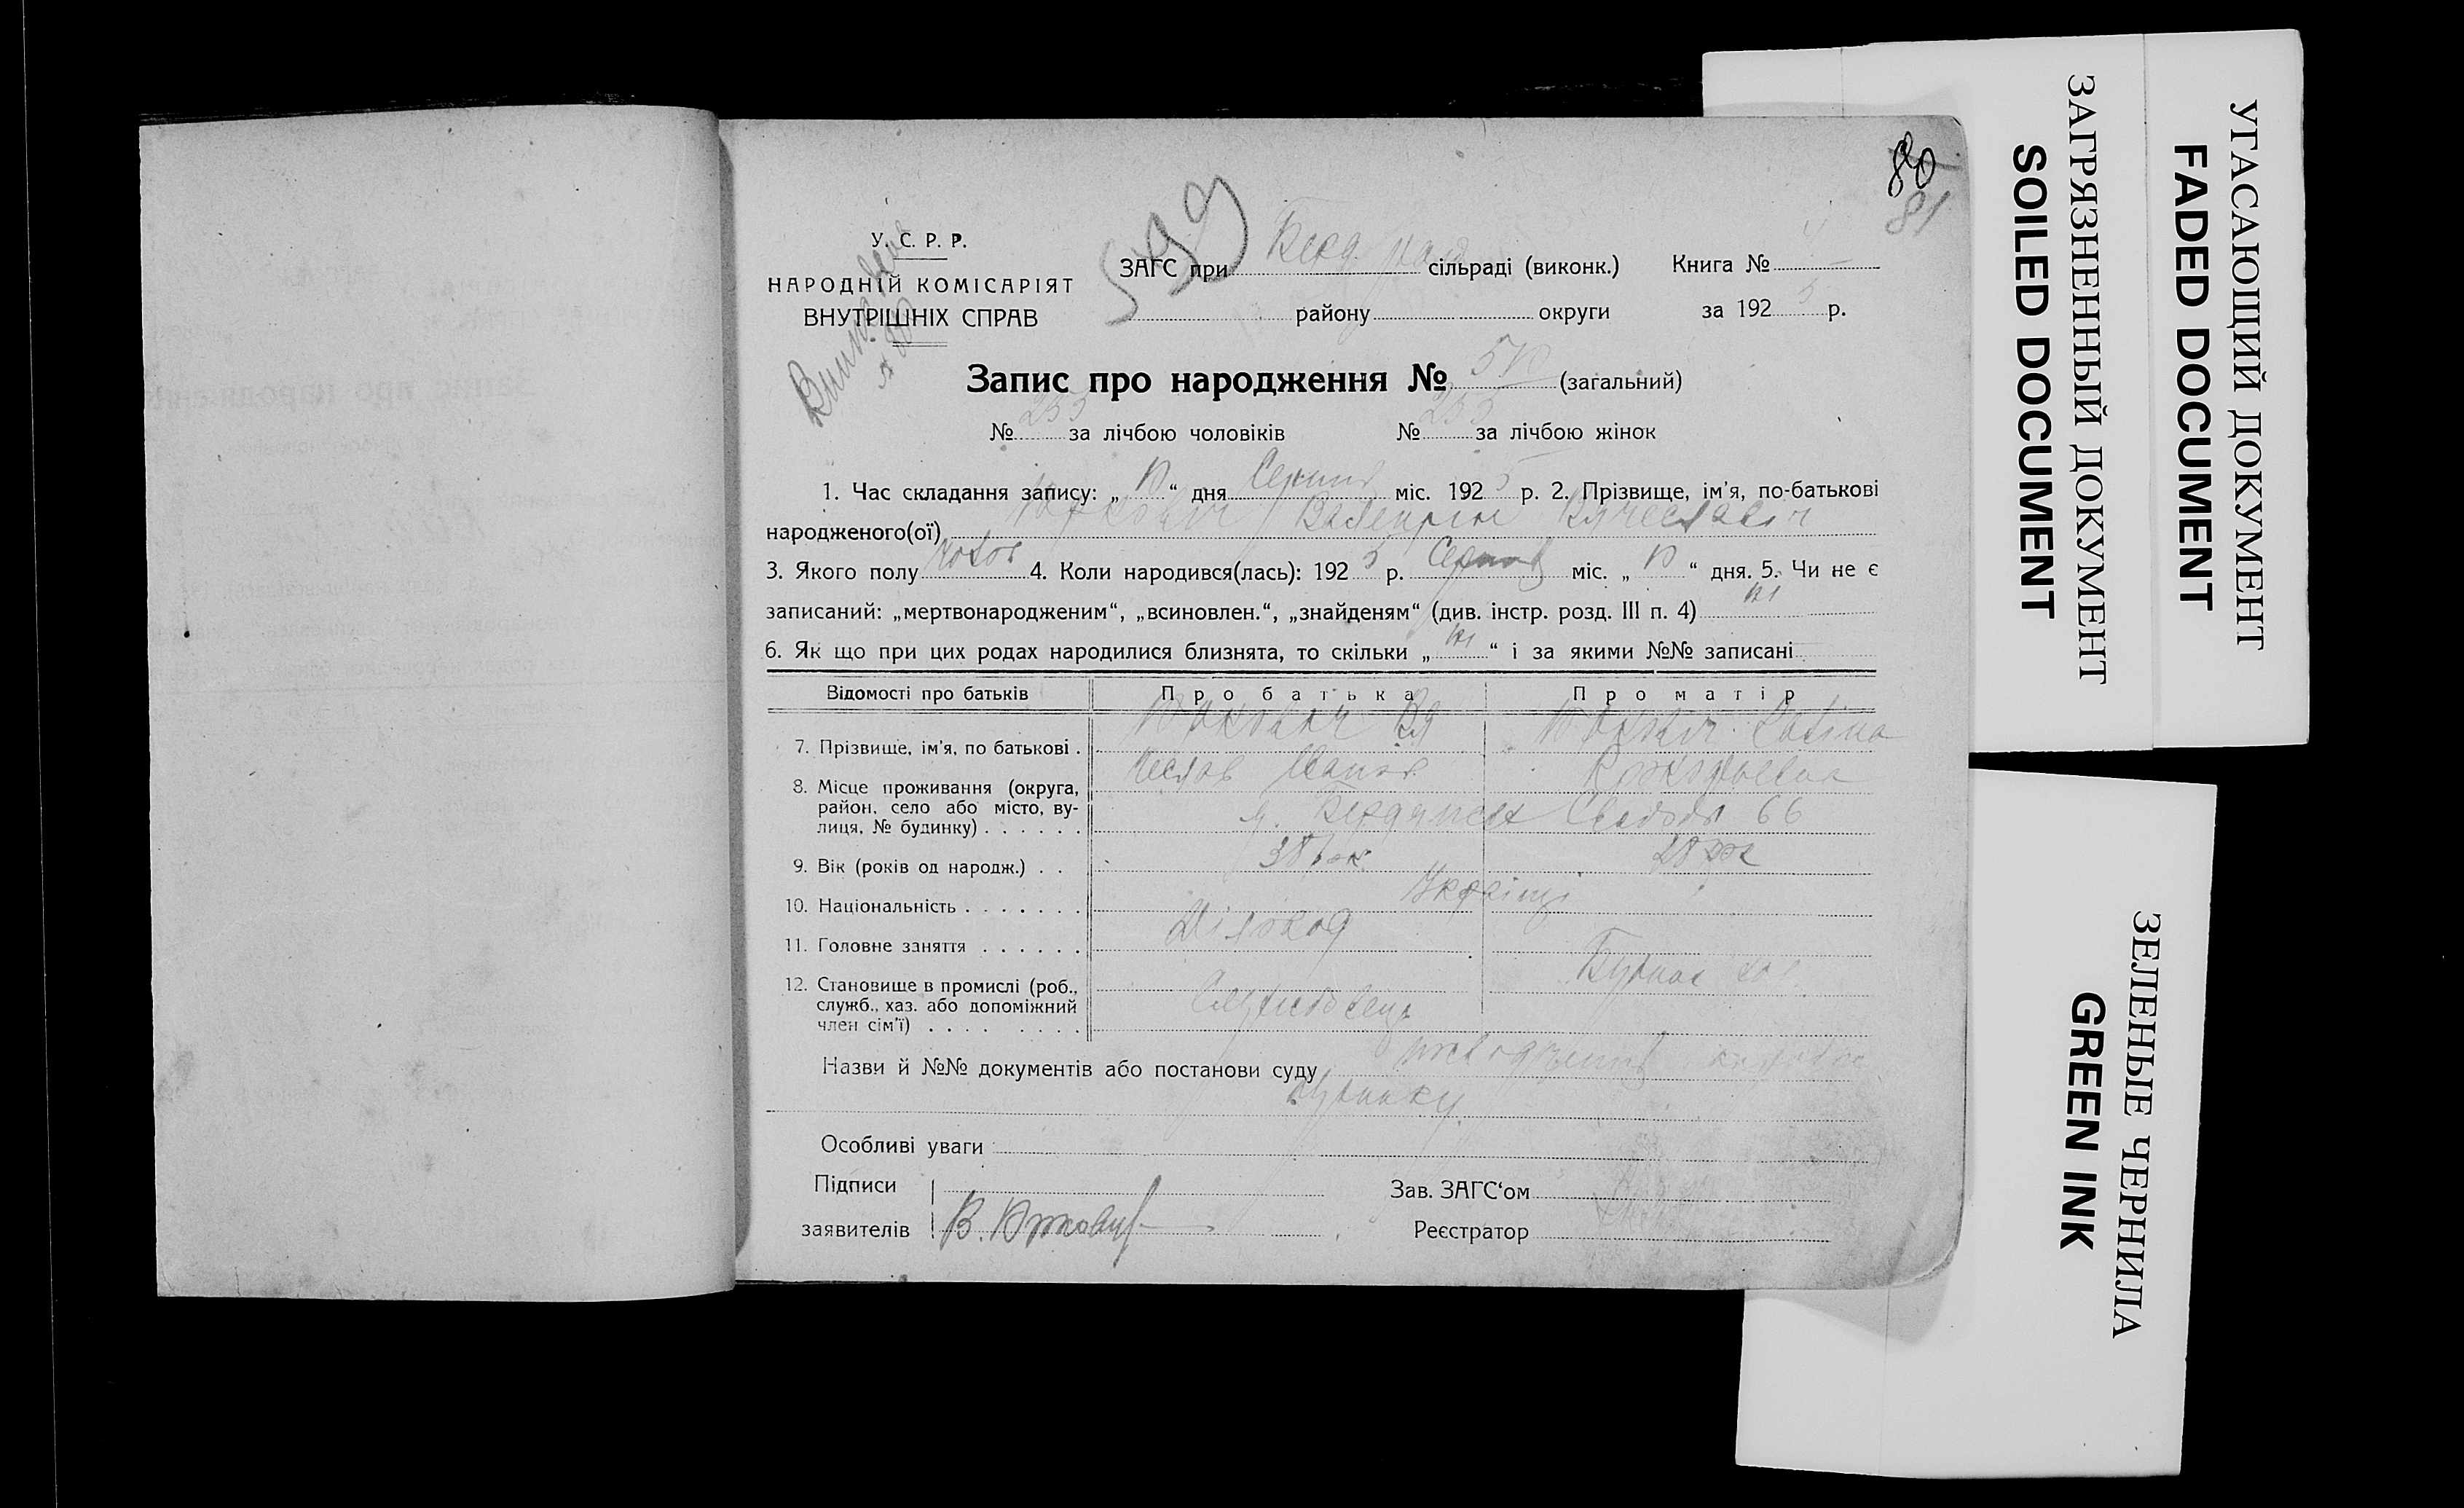 80
81
У. С. Р. Р.
НАРОДНІЙ КОМІСАРІЯТ
ВНУТРІШНІХ СПРАВ
599
ЗАГС при Берд сільраді (виконк.) Книга №
району округи за 192 5 р.
Запис про народження № (загальний)
№ 255 за лічбою чоловіків № 255 за лічбою жінок
1. Час складання запису: „ “ дня Серпня міс. 192 5 р. 2. Прізвище, ім'я, по-батькові
народженого(ої) Валентін Вячеславіч
3. Якого полу чолов 4. Коли народився(лась): 192 5 р. Серпня міс. „ “ дня. 5. Чи не є
записаний: „мертвонародженим“, „всиновлен.“, „знайденям“ (див. інстр. розд. III п. 4) ні
6. Як що при цих родах народилися близнята, то скільки „ ні “ і за якими №№ записані
Відомості про батьків Про батька Про матір
7. Прізвище, ім'я, по батькові . Вя
чеслав Іванов
8. Місце проживання (округа,
район, село або місто, ву-
лиця, № будинку) . . . . . . м. Бердянськ Свободи 66
9. Вік (років од народж.) . . 38 рок. 28 рок
10. Національність . . . . . . . Україці
11. Головне заняття . . . . . . Діловод
12. Становище в промислі (роб.,
служб., хаз. або допоміжний
член сім'ї) . . . . . . . . Службовець
Назви й №№ документів або постанови суду
будинку
Особливі уваги
Підписи Зав. ЗАГС‘ом
заявителів В. Реєстратор
УГАСАЮЩИЙ ДОКУМЕНТ
FADED DOCUMENT
ЗАГРЯЗНЕННЫЙ ДОКУМЕНТ
SOILED DOCUMENT
ЗЕЛЕНЫЕ ЧЕРНИЛА
GREEN INK